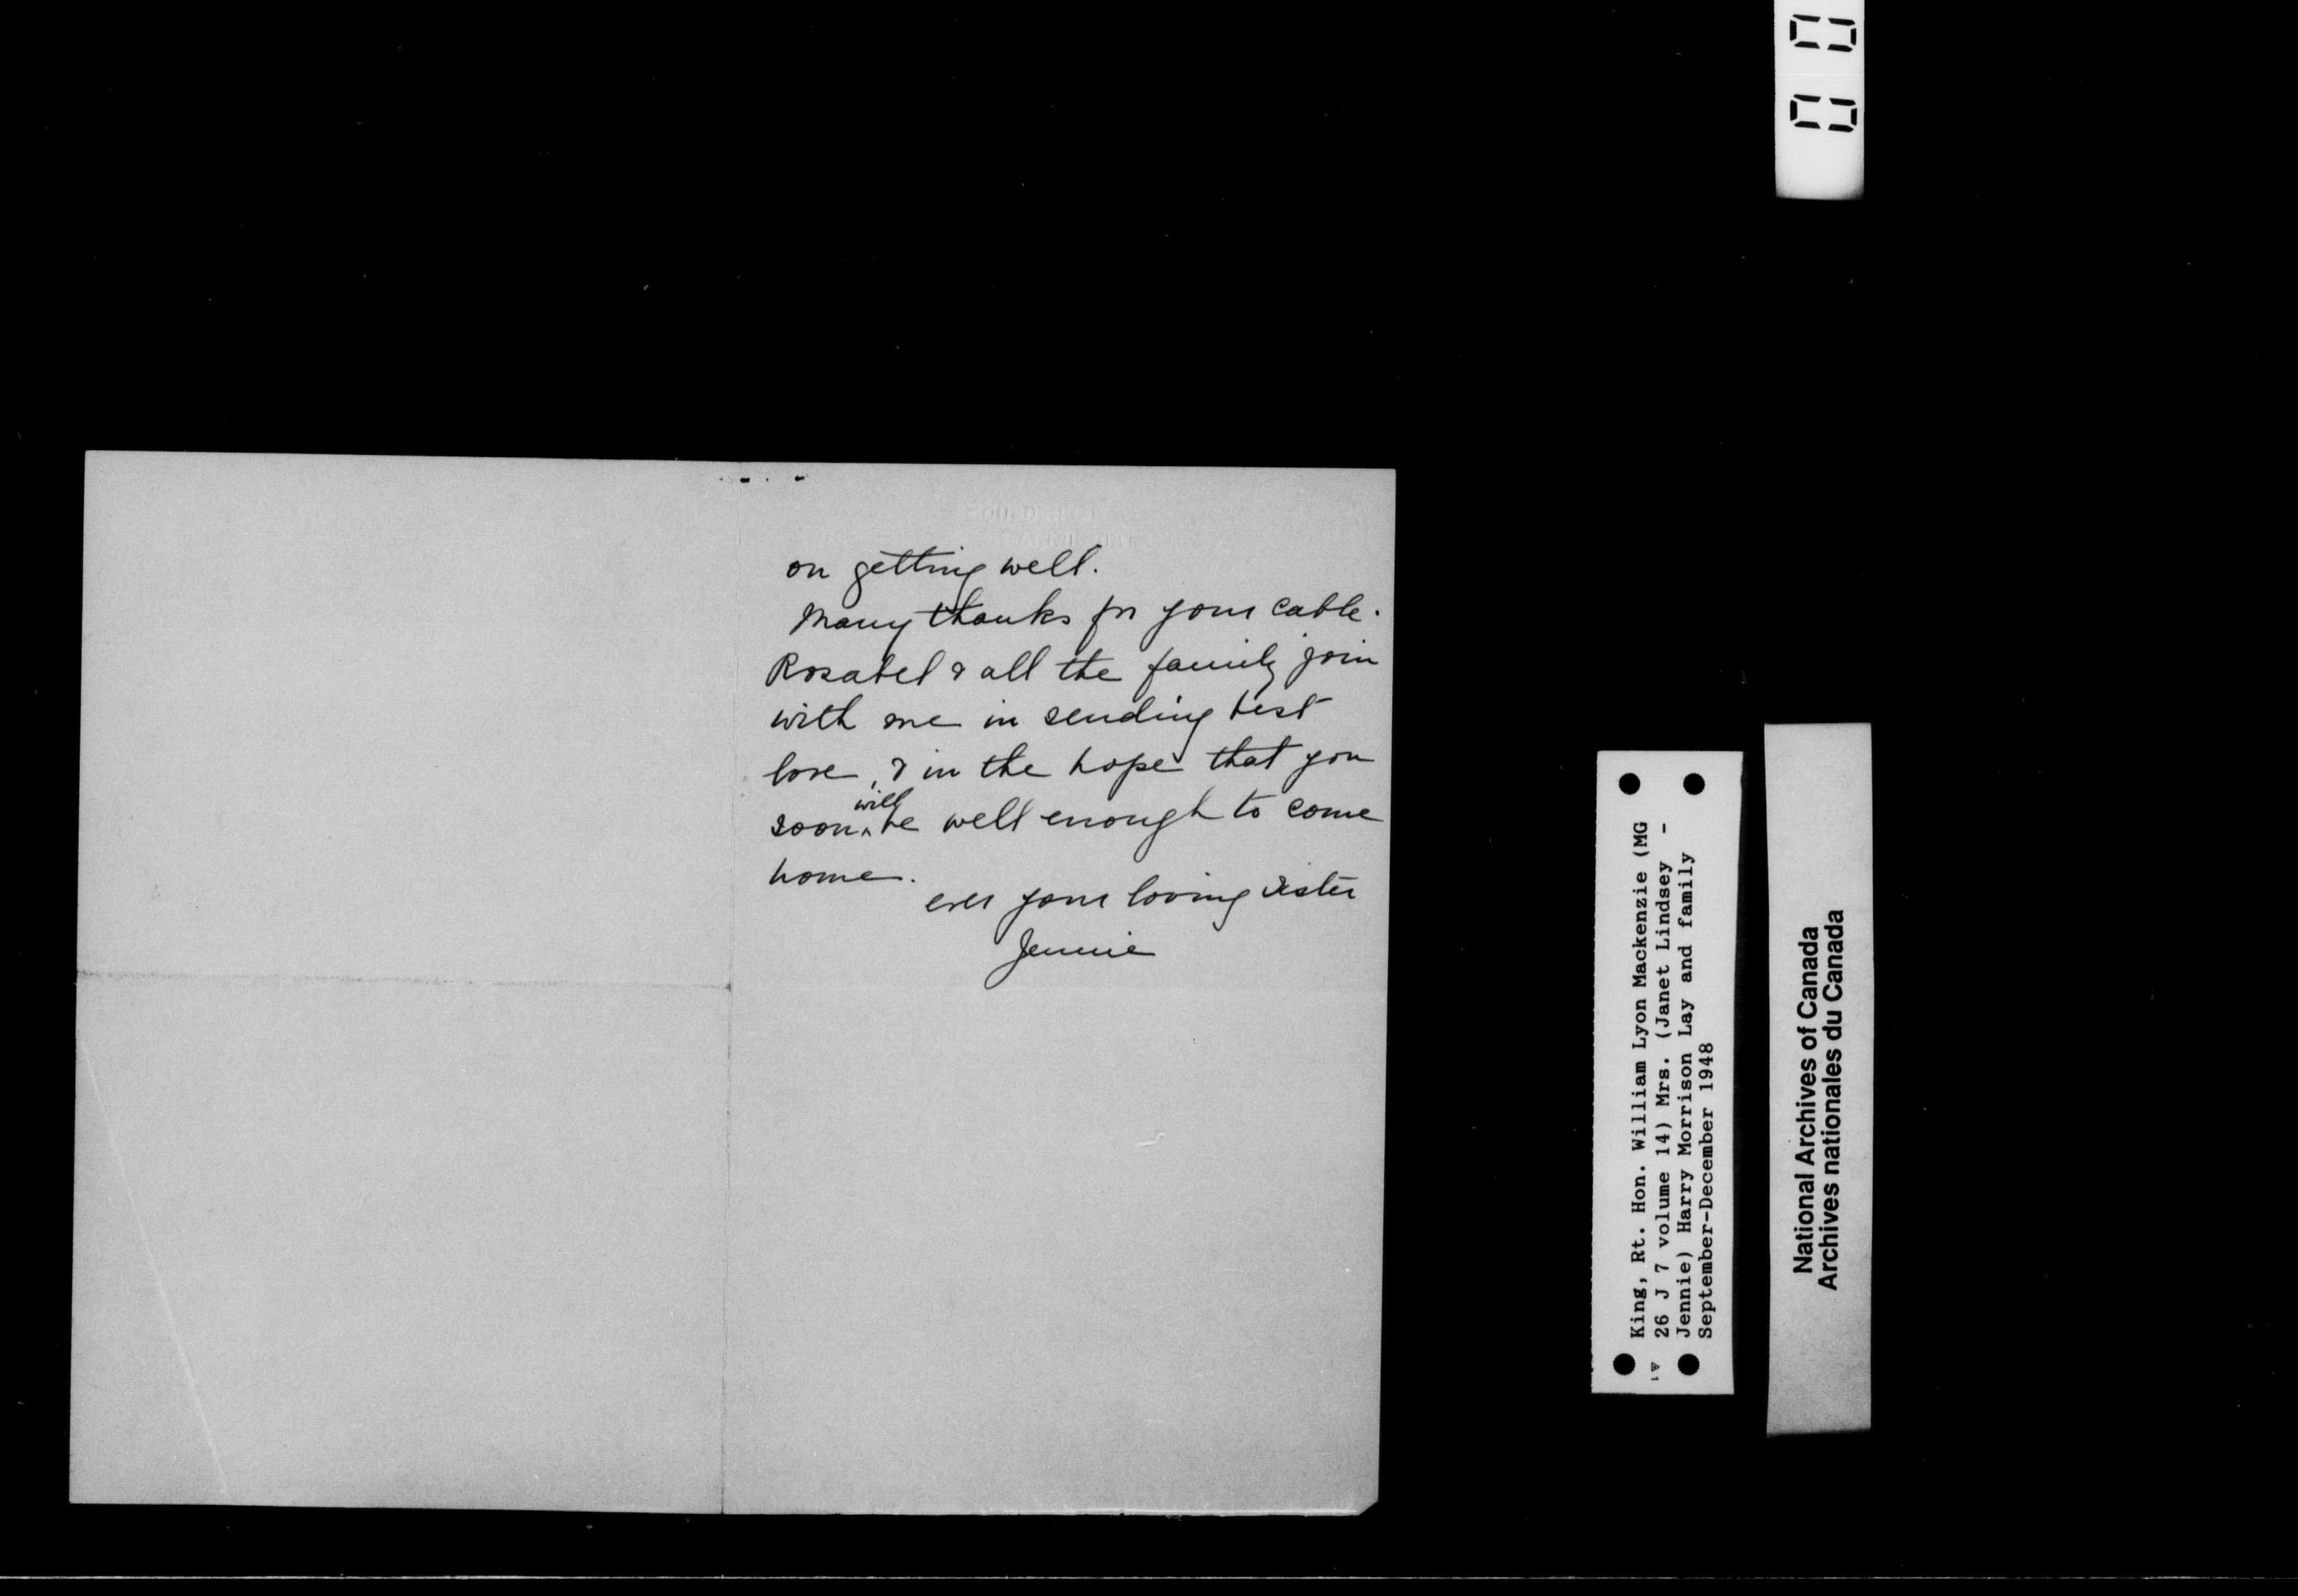 on getting well.
Many thanks for your cable.
Rosabel & all the family join
with me in sending best
love, & in the hope that you
soon will be well enough to come
home.
ever your loving sister
Jennie
King, Rt. Hon. William Lyon Mackenzie (MG
26 J 7 volume 14) Mrs. (Janet Lindsey -
Jennie) Harry Morrison Lay and family
September-December 1948
National Archives of Canada
Archives nationales du Canada